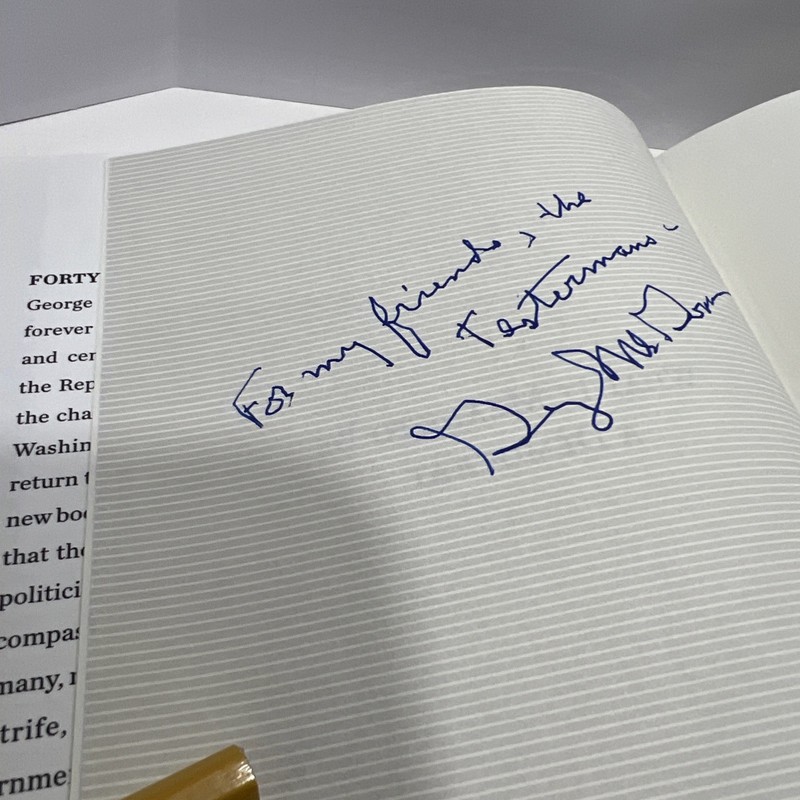 FORTY
George
forever
and cer
the Rep
the cha
Washin
return t
new boo
that the
politici
compas
many, r
trife,
rnme
For my friends, the
Testermans -
George McGovern